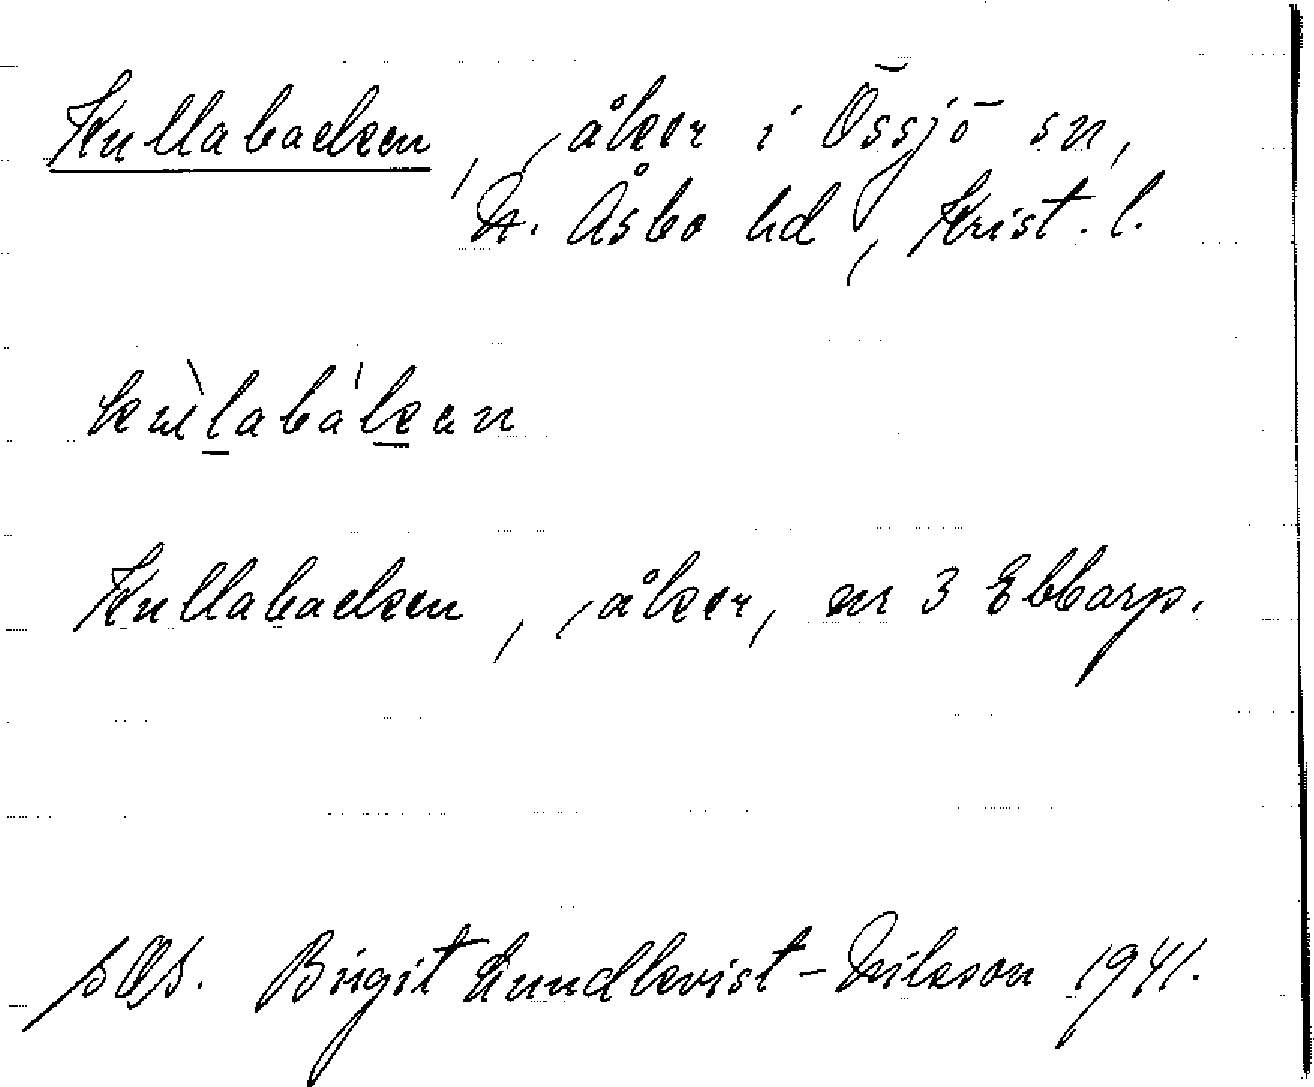 Kullabacken, åker i Össjö sn,
N. Åsbo hd, Krist. l.
kùlabákan
Kullabacken, åker, nr 3 Ebbarp.
Birgit Lundkvist-Nilsson 1941.